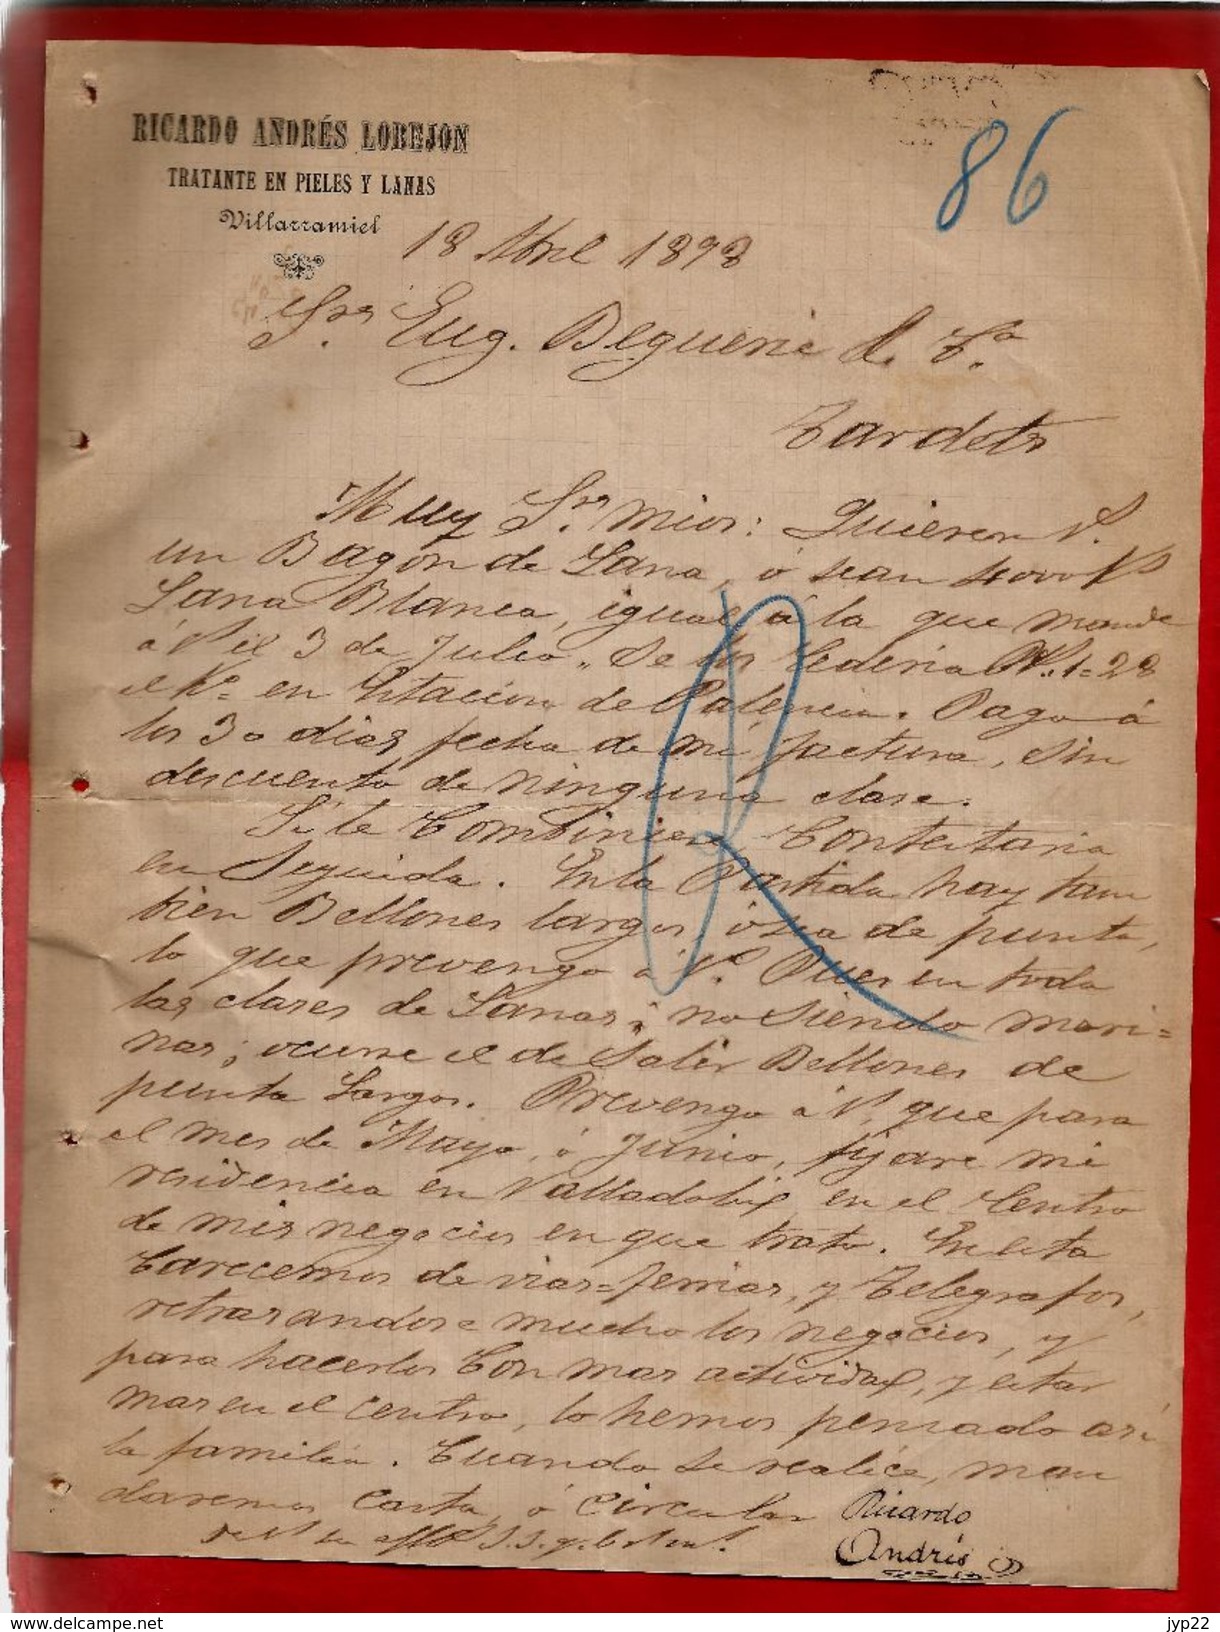 RICARDO ANDRÉS LOBEJON
TRATANTE EN PIELES Y LANAS
Villarramiel
86
18 Abril 1898
Srs. Eug. Beguerie & Cª
Tardets
Muy Srs. mios: Quieren V.
un Bagon de Lana, ó sean 4000 Ks
Lana Blanca, igual á la que mande
á V. el 3 de Julio. Se los Cederia P. 1=28
el Kº en Estacion de Palencia. Pago á
los 30 dias fecha de mi factura, sin
descuento de ninguna clase.
Si le Combiniese Contestaria
en Seguida. En la Partida hay tam
bien Bellones largos, ó sea de punta,
lo que prevengo á V. Pues en toda
las clases de Lanas, no siendo meri=
nas, ocurre el de Salir Bellones de
punta Largos. Prevengo á V. que para
el mes de Mayo, ó Junio, fijare mi
residencia en Valladolid, en el Centro
de mis negocios en que trato. En esta
Carecemos de vias=ferrias, y Telegrafos,
retrasandose mucho los negocios, y
para hacerlos Con mas actividad, y estar
mas en el centro, lo hemos pensado asi
la familia. Cuando se realice, man
daremos Carta, ó Circular
de V. su affº S.S. q. b. s. m.
Ricardo
Andrés
Delcampe.net
jyp22